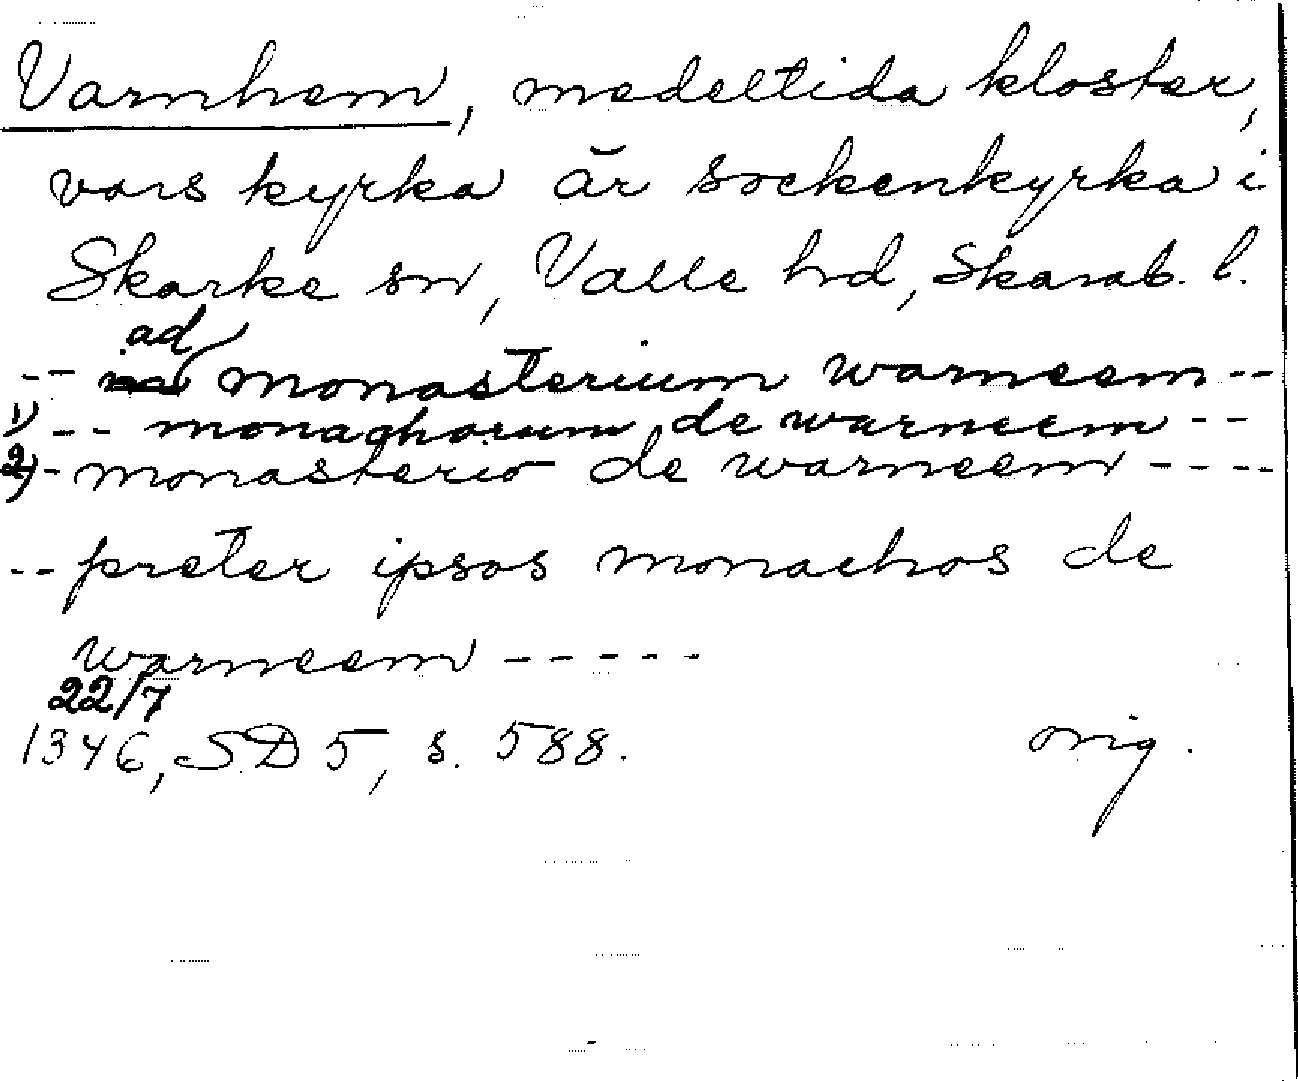 Varnhem, medeltida kloster,
vars kyrka är sockenkyrka i
Skarke sn, Valle hd, Skarab. l.
ad
-- monasterium warneem --
1) -- monachorum de warneem --
2) - monasterio de warneem ----
-- preter ipsos monachos de
warneem -----
22/7
1346, SD 5, s. 588. orig.